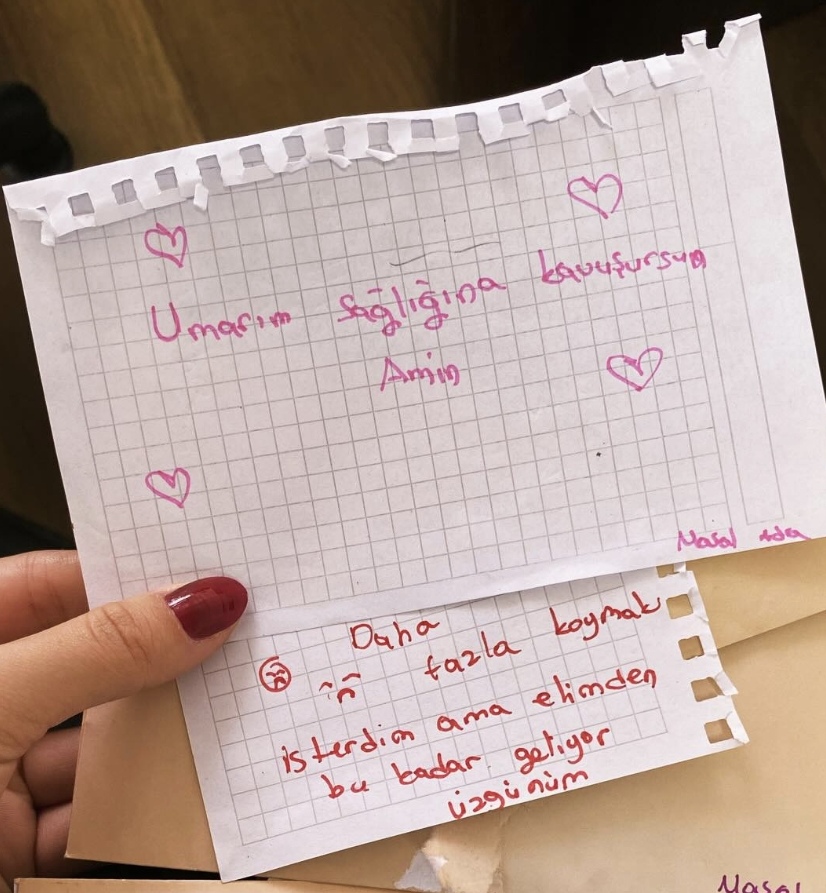 Umarım sağlığına kavuşursun
Amin
Masal
Daha
fazla koymak
isterdim ama elimden
bu kadar geliyor
üzgünüm
Masal